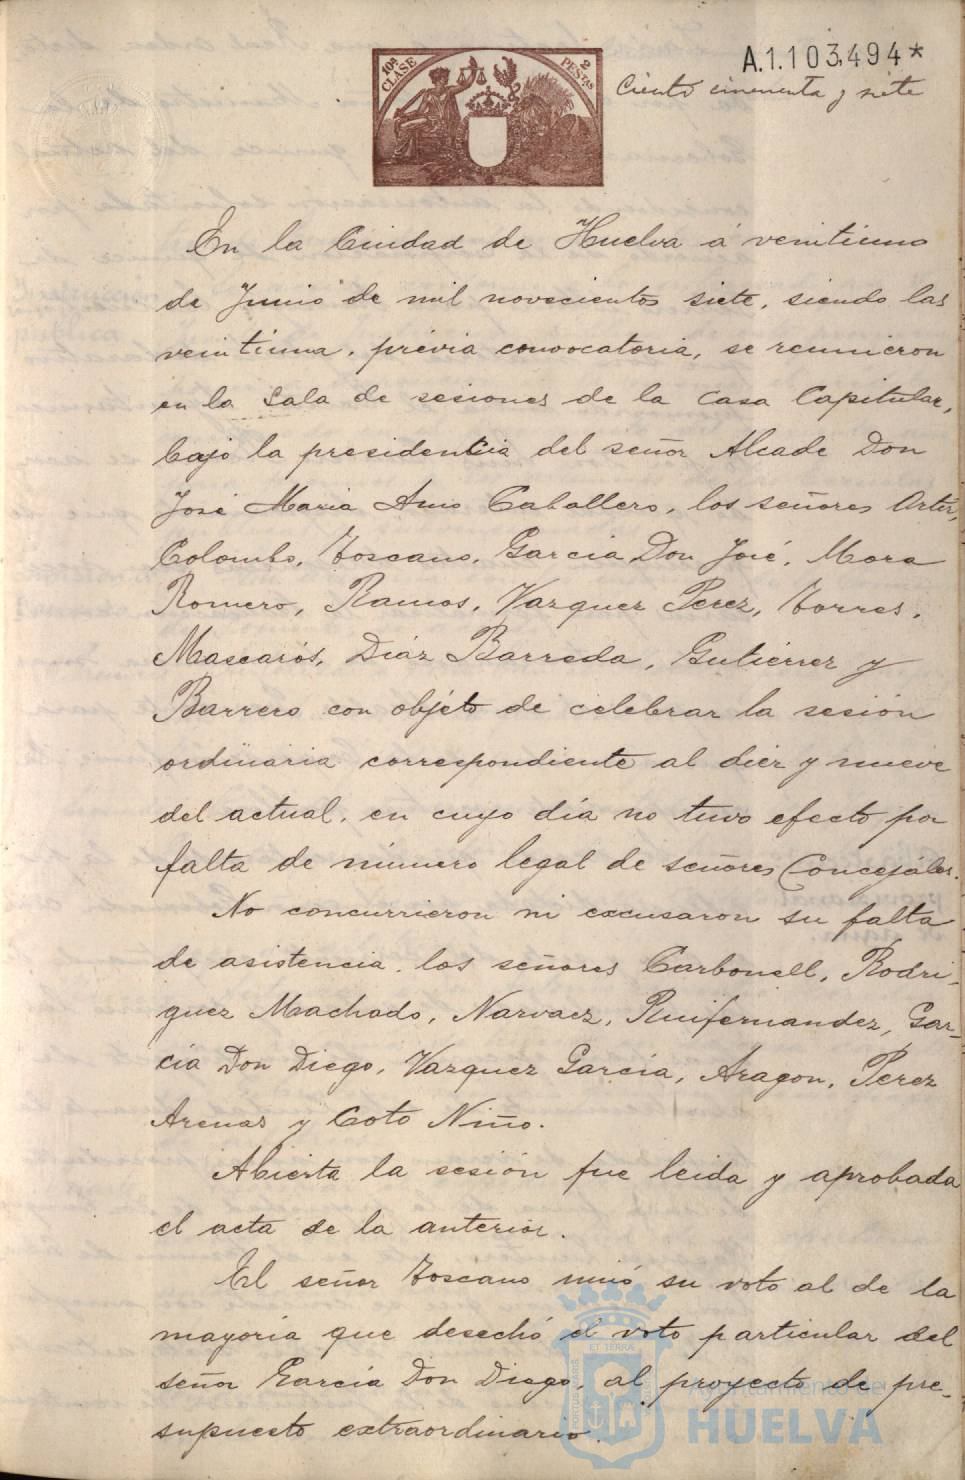 10ª CLASE
2 PESTAS
A.1.103.494*
Ciento cincuenta y siete
En la Ciudad de Huelva á veintiuno
de Junio de mil novecientos siete, siendo las
veintiuna, prévia convocatoria, se reunieron
en la Sala de sesiones de la Casa Capitular,
bajo la presidencia del señor Alcade Don
José Maria Amo Caballero, los señores
Colombo, Toscano, Garcia Don José, Mora
Romero, Ramos, Vazquez Perez, Torres,
Mascarós, Diáz Barreda, Gutiérrez y
Barrero con objéto de celebrar la sesión
ordinaria correspondiente al diez y nueve
del actual, en cuyo día no tuvo efecto por
falta de número legal de señores Concejáles.
No concurrieron ni excusaron su falta
de asistencia, los señores Carbonell, Rodri-
guez Machado, Narvaez, Ruifernandez, Gar-
cia Don Diego, Vazquez García, Aragon, Perez
Arenas y Coto Niño.
Abierta la sesión fue leida y aprobada
el acta de la anterior.
El señor Toscano unió su voto al de la
mayoría que desechó el voto particular del
señor Garcia Don Diego, al proyecto de pre-
supuesto extraordinario.
Ayuntamiento de
HUELVA